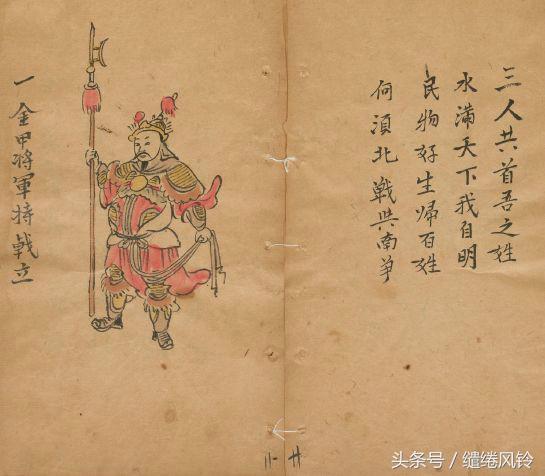 三人共首吾之姓
水滿天下我自明
民物好生歸百姓
何須北戰與南爭
一金甲将軍持戟立
头条号 / 缱绻风铃